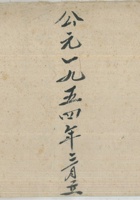 公元一九五四年二月立